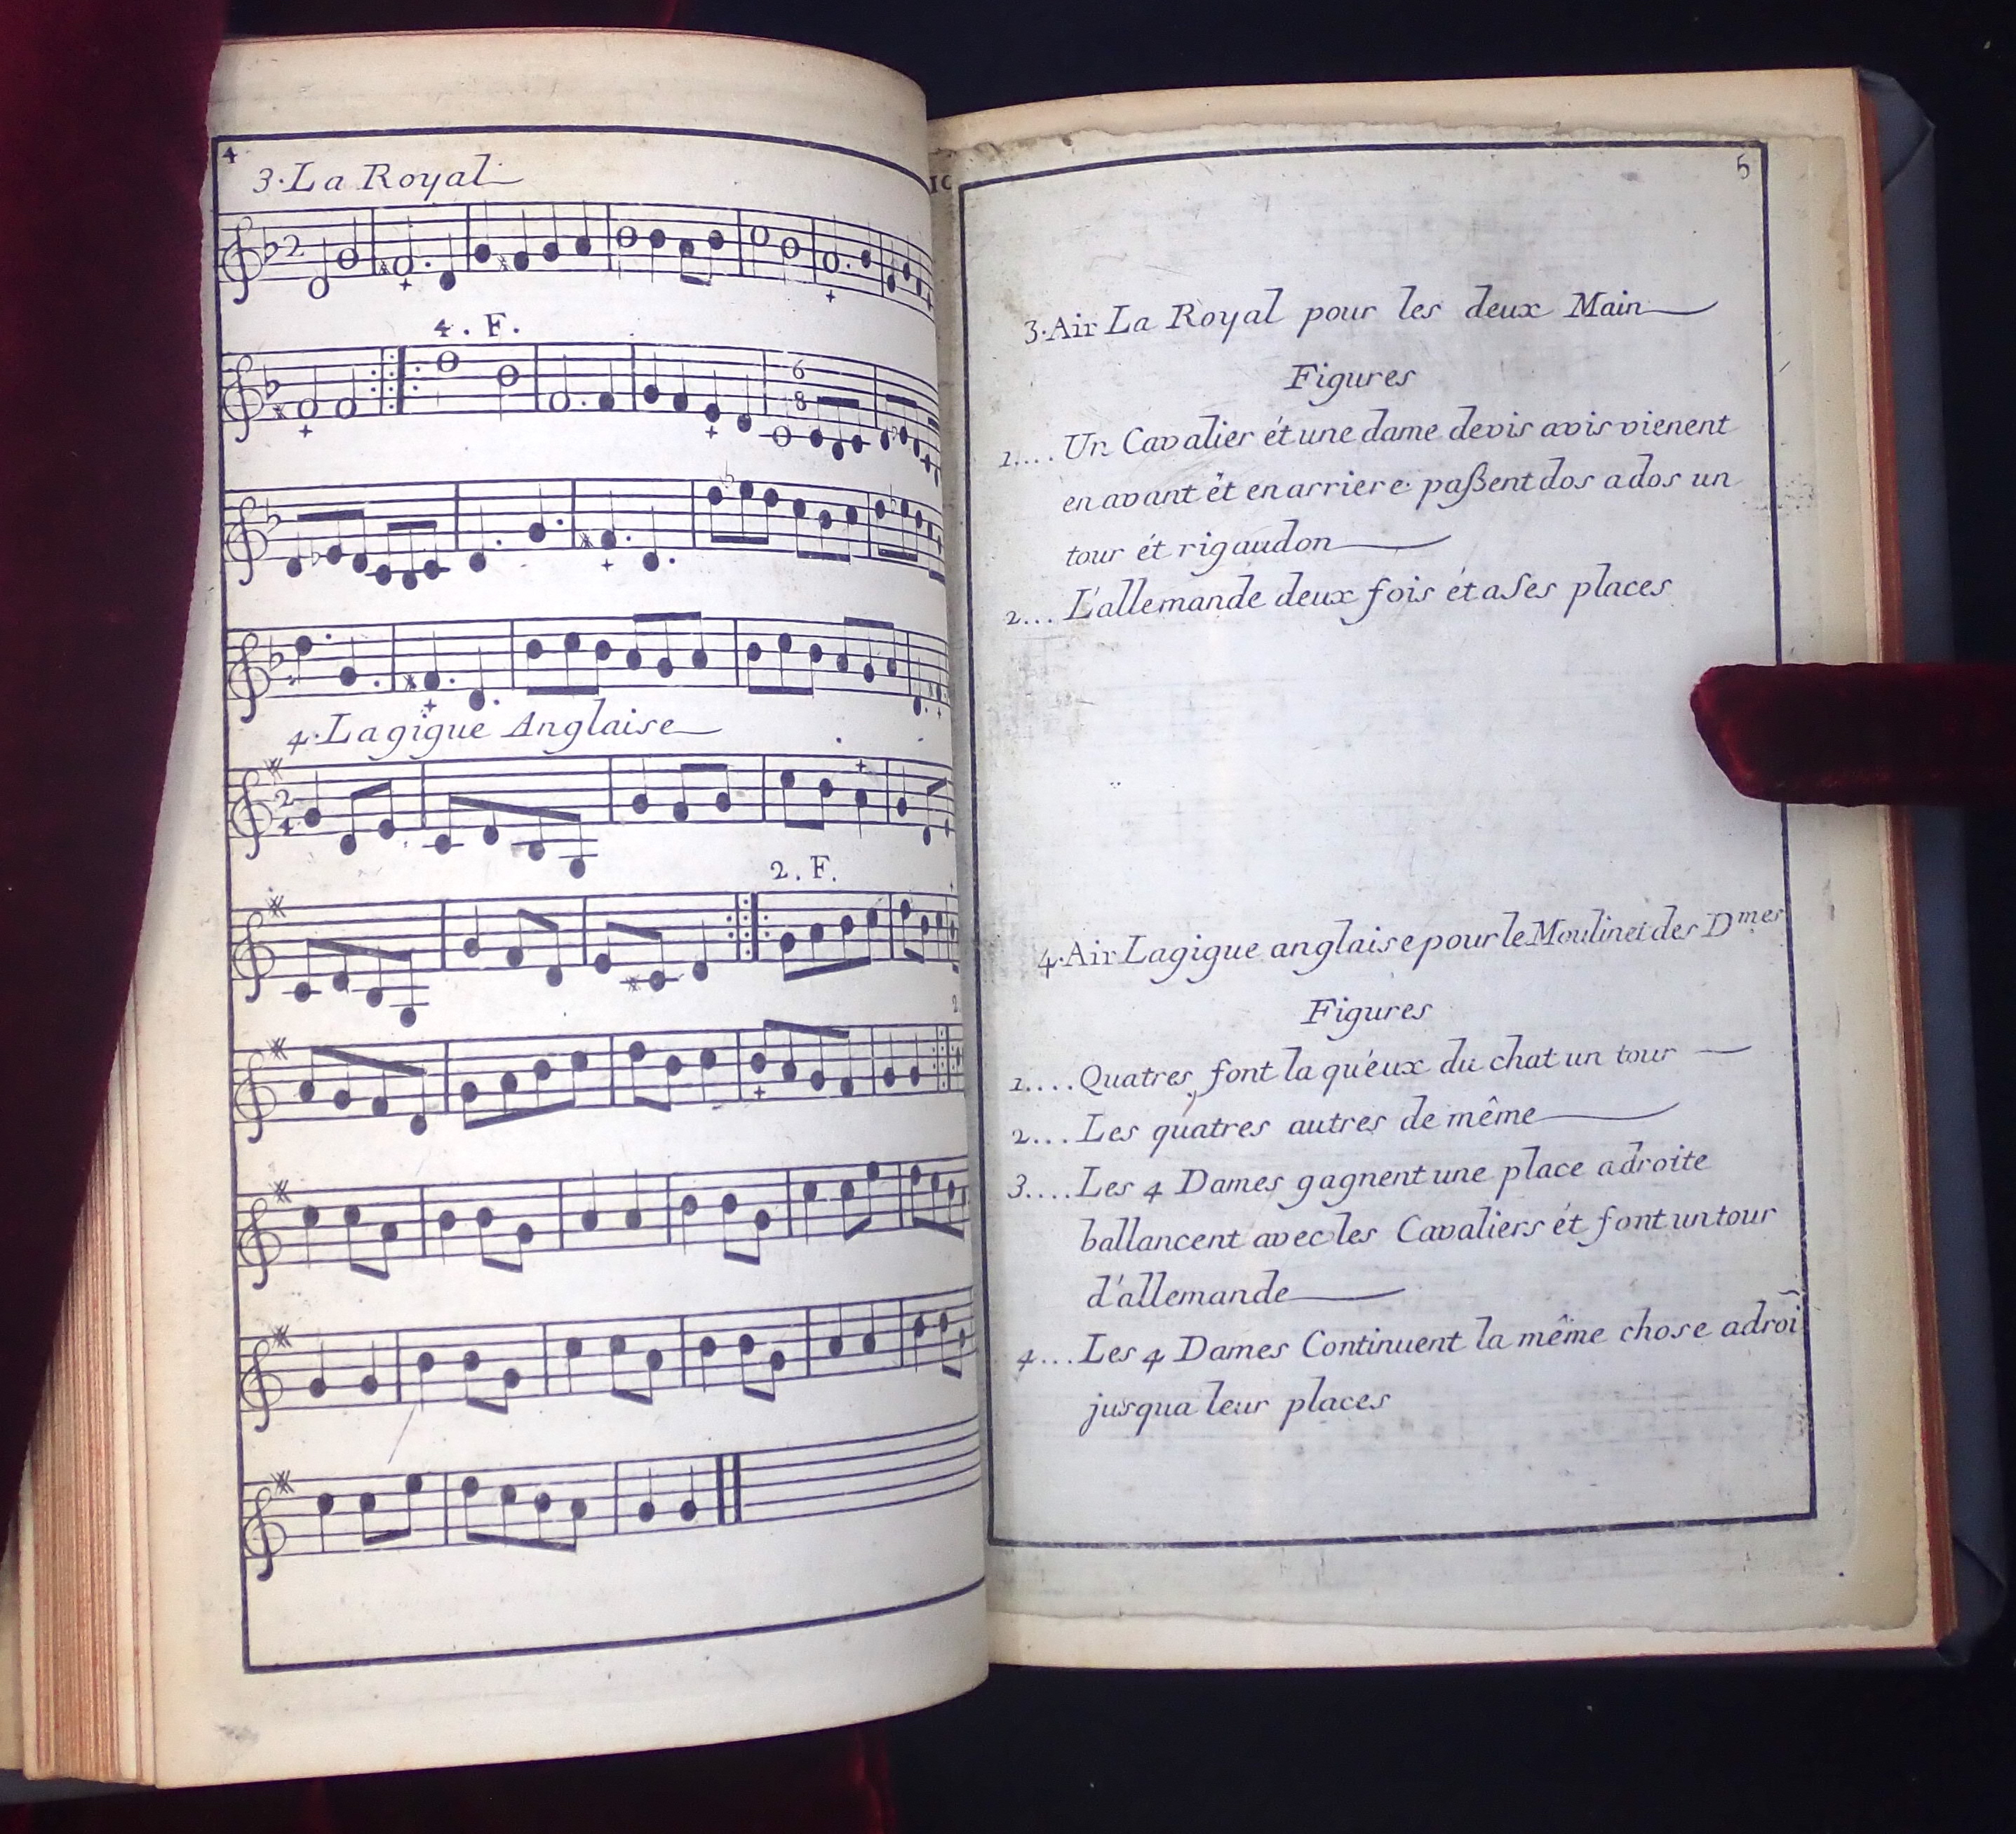 4
3. La Royal
2
4. F.
6
8
4. Lagigue Anglaise
2
4
2. F.
2
5
3. Air La Royal pour les deux Main
Figures
1.... Un Cavalier ét une dame devis avis vienent
en avant ét en arriere paßent dos a dos un
tour ét rigaudon
2... L'allemande deux fois ét a Ses places
4. Air Lagigue anglaise pour le Moulinet des Dmes
Figures
1.... Quatres font la quéux du chat un tour
2... Les quatres autres de même
3.... Les 4 Dames gagnent une place adroite
ballancent avec les Cavaliers ét font un tour
d'allemande
4... Les 4 Dames Continuent la même chose adroi
jusqua leur places